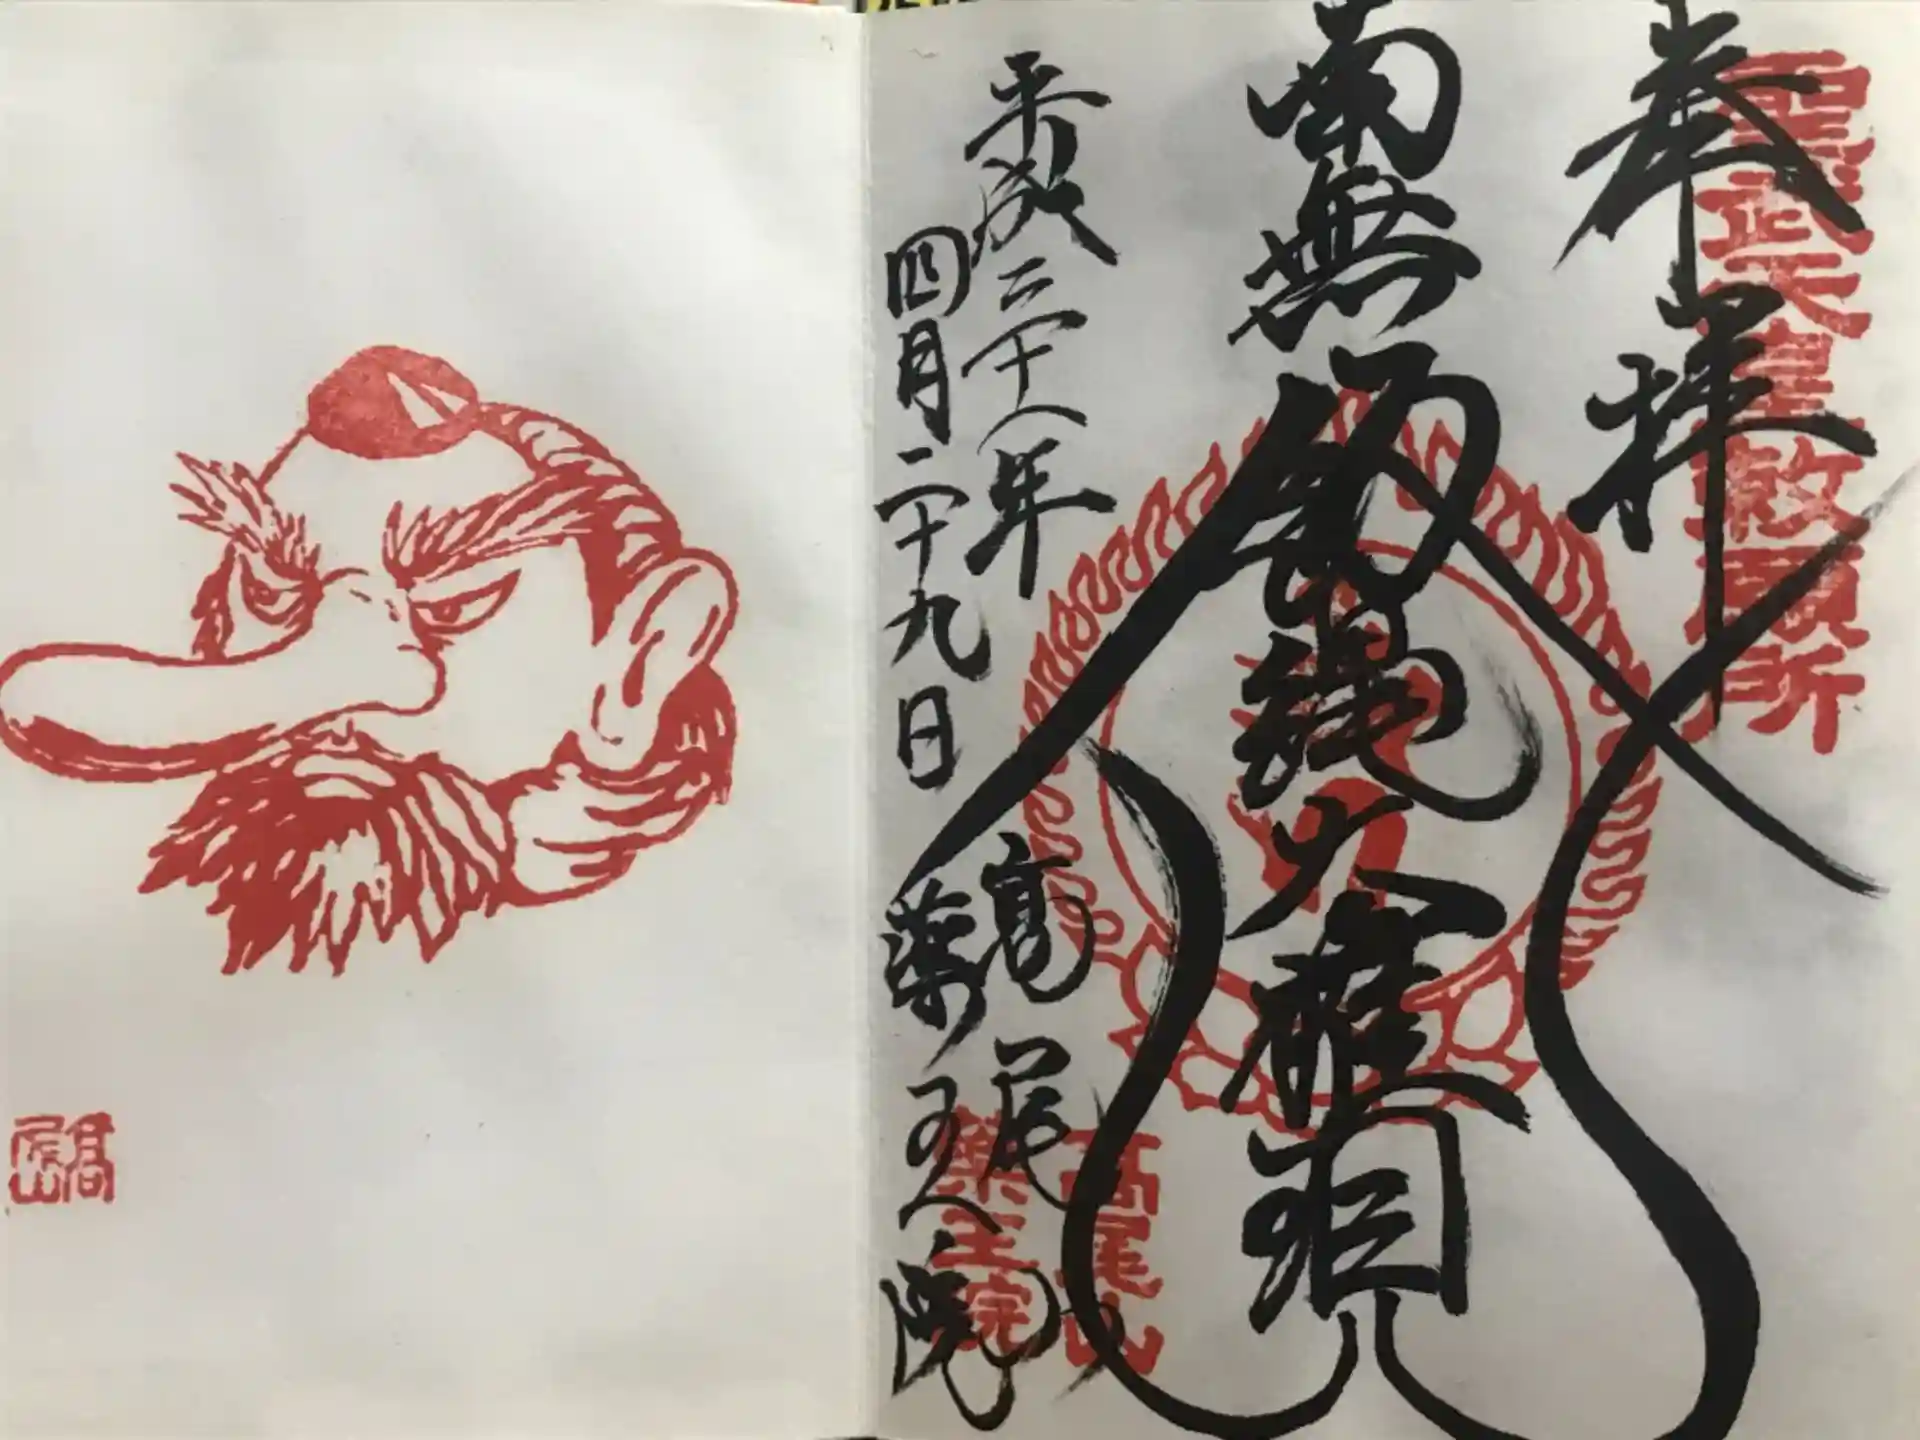 奉拝
聖武天皇敕願所
南無飯縄大権現
平成三十八年
四月二十九日
高尾山
薬王院
高尾山
薬王院
高尾山